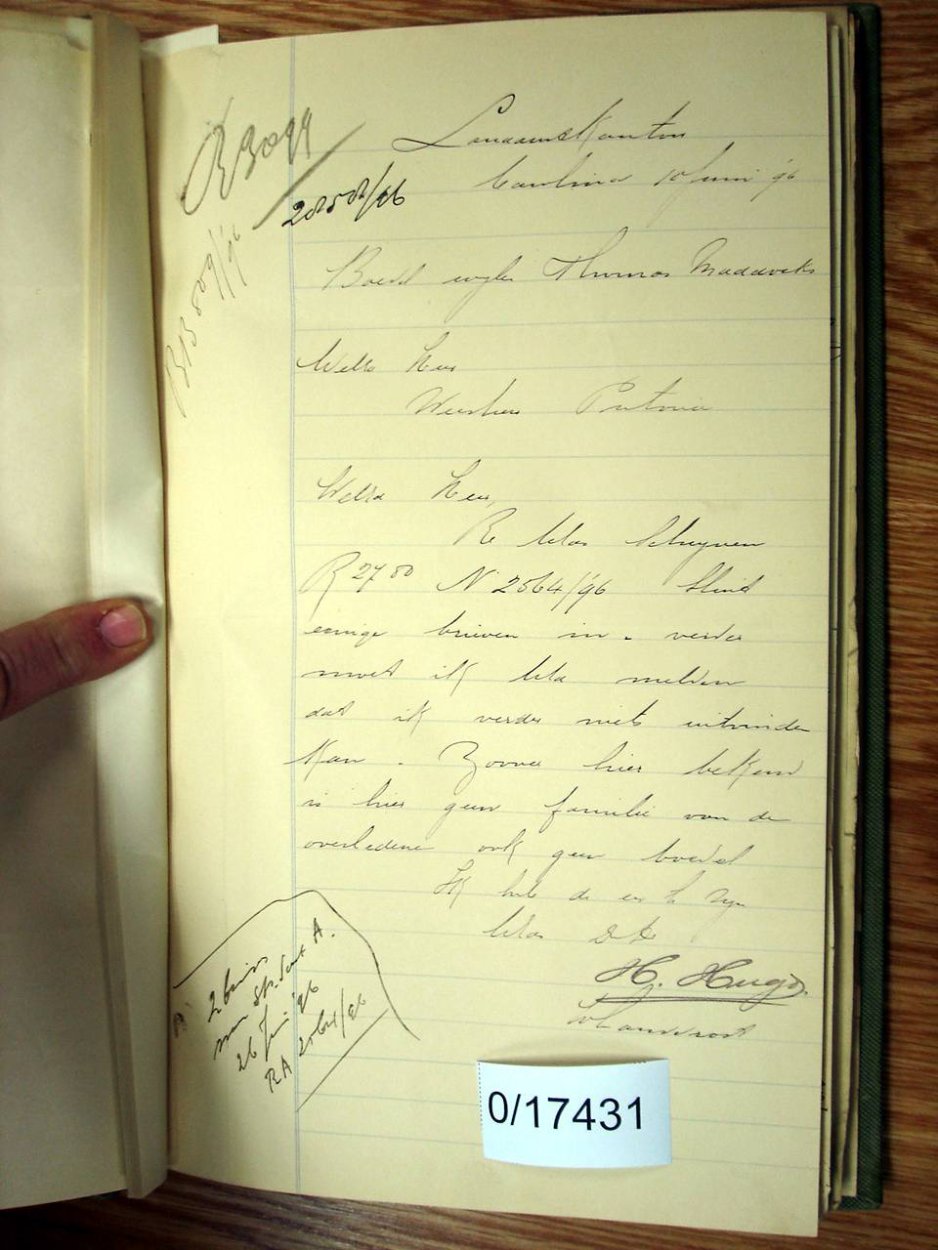 R 3099
Landdrostkantoor
20502/96
Carolina 10 Juni 96
BB 509/96
Boedel wijlen Thomas
WelEd Heer
Weesheer Pretoria
WelEd Heer,
Re UEds Schrijven
R 2700 N 2564/96 Sluit
eenige brieven in. verder
moet ik UEd melden
dat ik verder niets uitvinden
kan. Zoover hier bekend
is hier geen familie van de
overledene ook geen boedel
Ik heb de eer te zijn
UEds
H. Hugo
Landdrost
2 brieven
26 Juni 96
RA 2564/96
0/17431